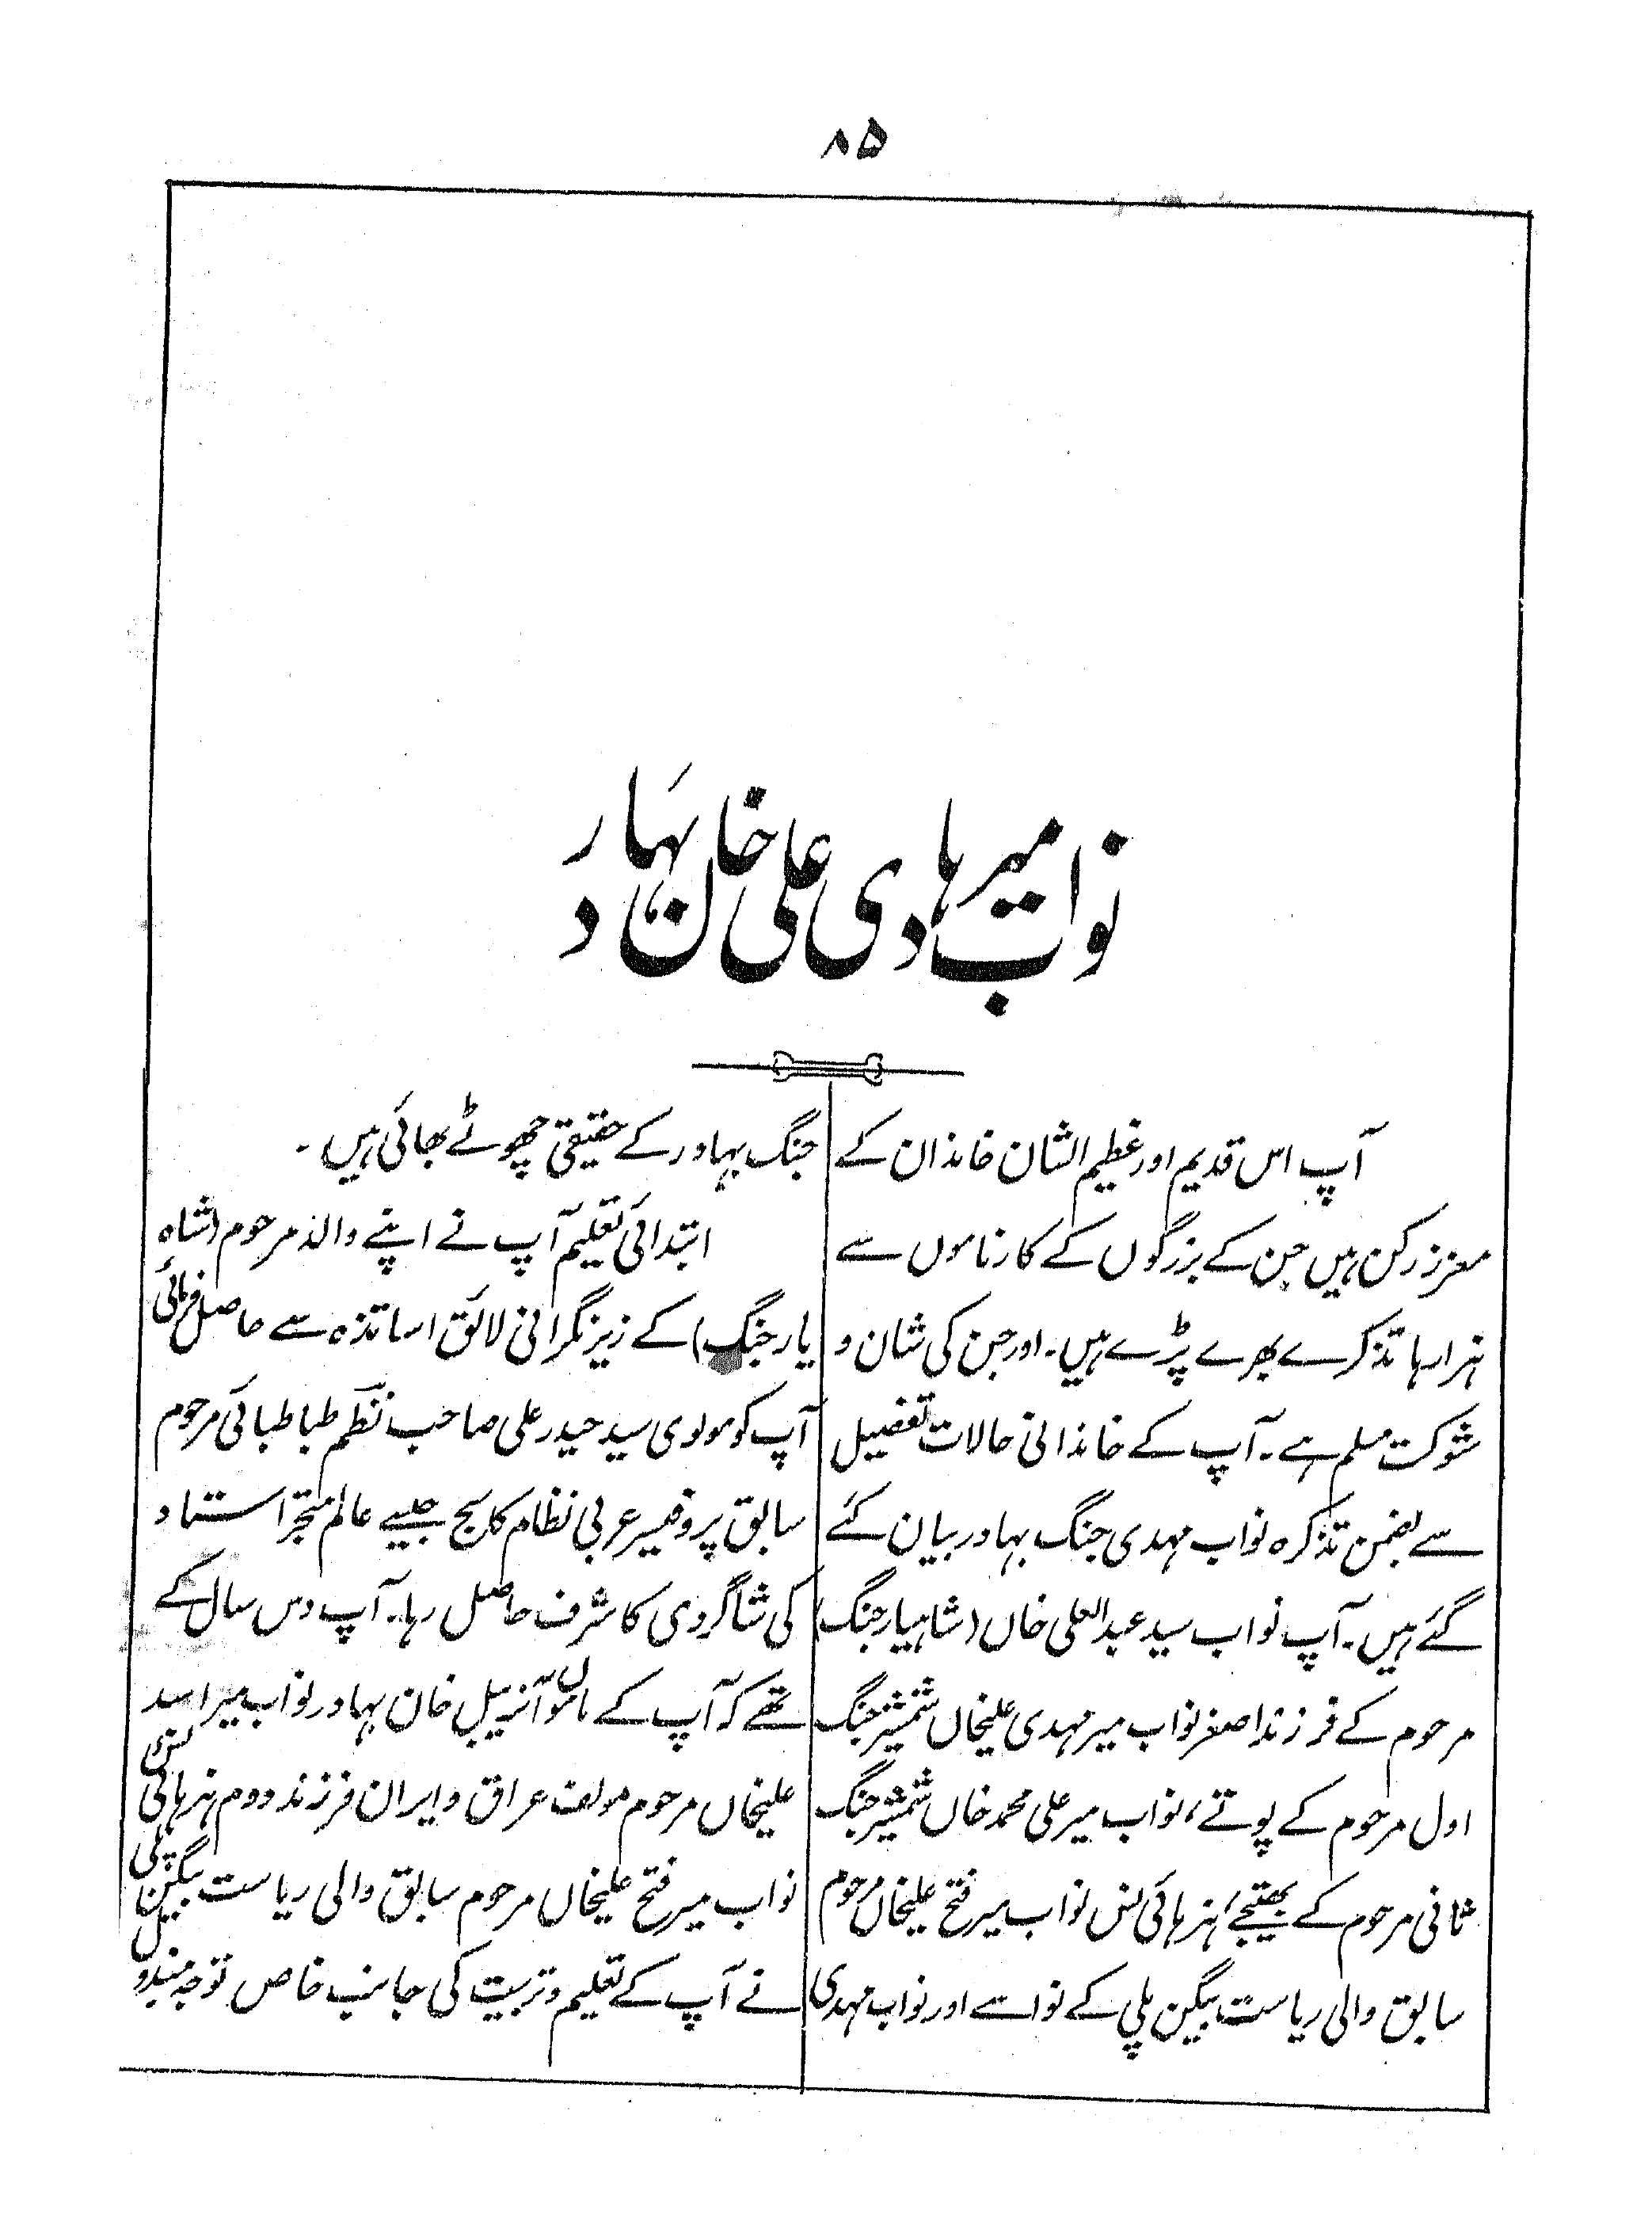 ۸۵
نواب میر ہادی علی خان بہادر
آپ اس قدیم اور عظیم الشان خاندان کے
معزز رکن ہیں جن کے بزرگوں کے کارناموں سے
ہزارہا تذکرے بھرے پڑے ہیں۔ اور جن کی شان و
شوکت مسلم ہے۔ آپ کے خاندانی حالات تفصیل
سے بضمن تذکرہ نواب مہدی جنگ بہادر بیان کئے
گئے ہیں۔ آپ نواب سید عبدالعلی خاں (شاہیار جنگ)
مرحوم کے فرزند اصغر نواب میر مہدی علیخاں شمشیر جنگ
اول مرحوم کے پوتے، نواب میر علی محمد خاں شمشیر جنگ
ثانی مرحوم کے بھتیجے، ہنر ہائی نس نواب میر فتح علیخاں مرحوم
سابق والی ریاست بیگن پلی کے نواسے اور نواب مہدی
جنگ بہادر کے حقیقی چھوٹے بھائی ہیں۔
ابتدائی تعلیم آپ نے اپنے والد مرحوم (شاہ
یار جنگ) کے زیر نگرانی لائق اساتذہ سے حاصل فرمائی
آپ کو مولوی سید حیدر علی صاحب نظم طباطبائی مرحوم
سابق پروفیسر عربی نظام کالج جیسے عالم متبحر استاد
کی شاگردی کا شرف حاصل رہا۔ آپ دس سال کے
تھے کہ آپ کے ماموں آنریبل خان بہادر نواب میر اسد
علیخاں مرحوم مولف عراق و ایران فرزند دوم ہنر ہائی نس
نواب میر فتح علیخاں مرحوم سابق والی ریاست بیگن پلی
نے آپ کے تعلیم و تربیت کی جانب خاص توجہ مبذول